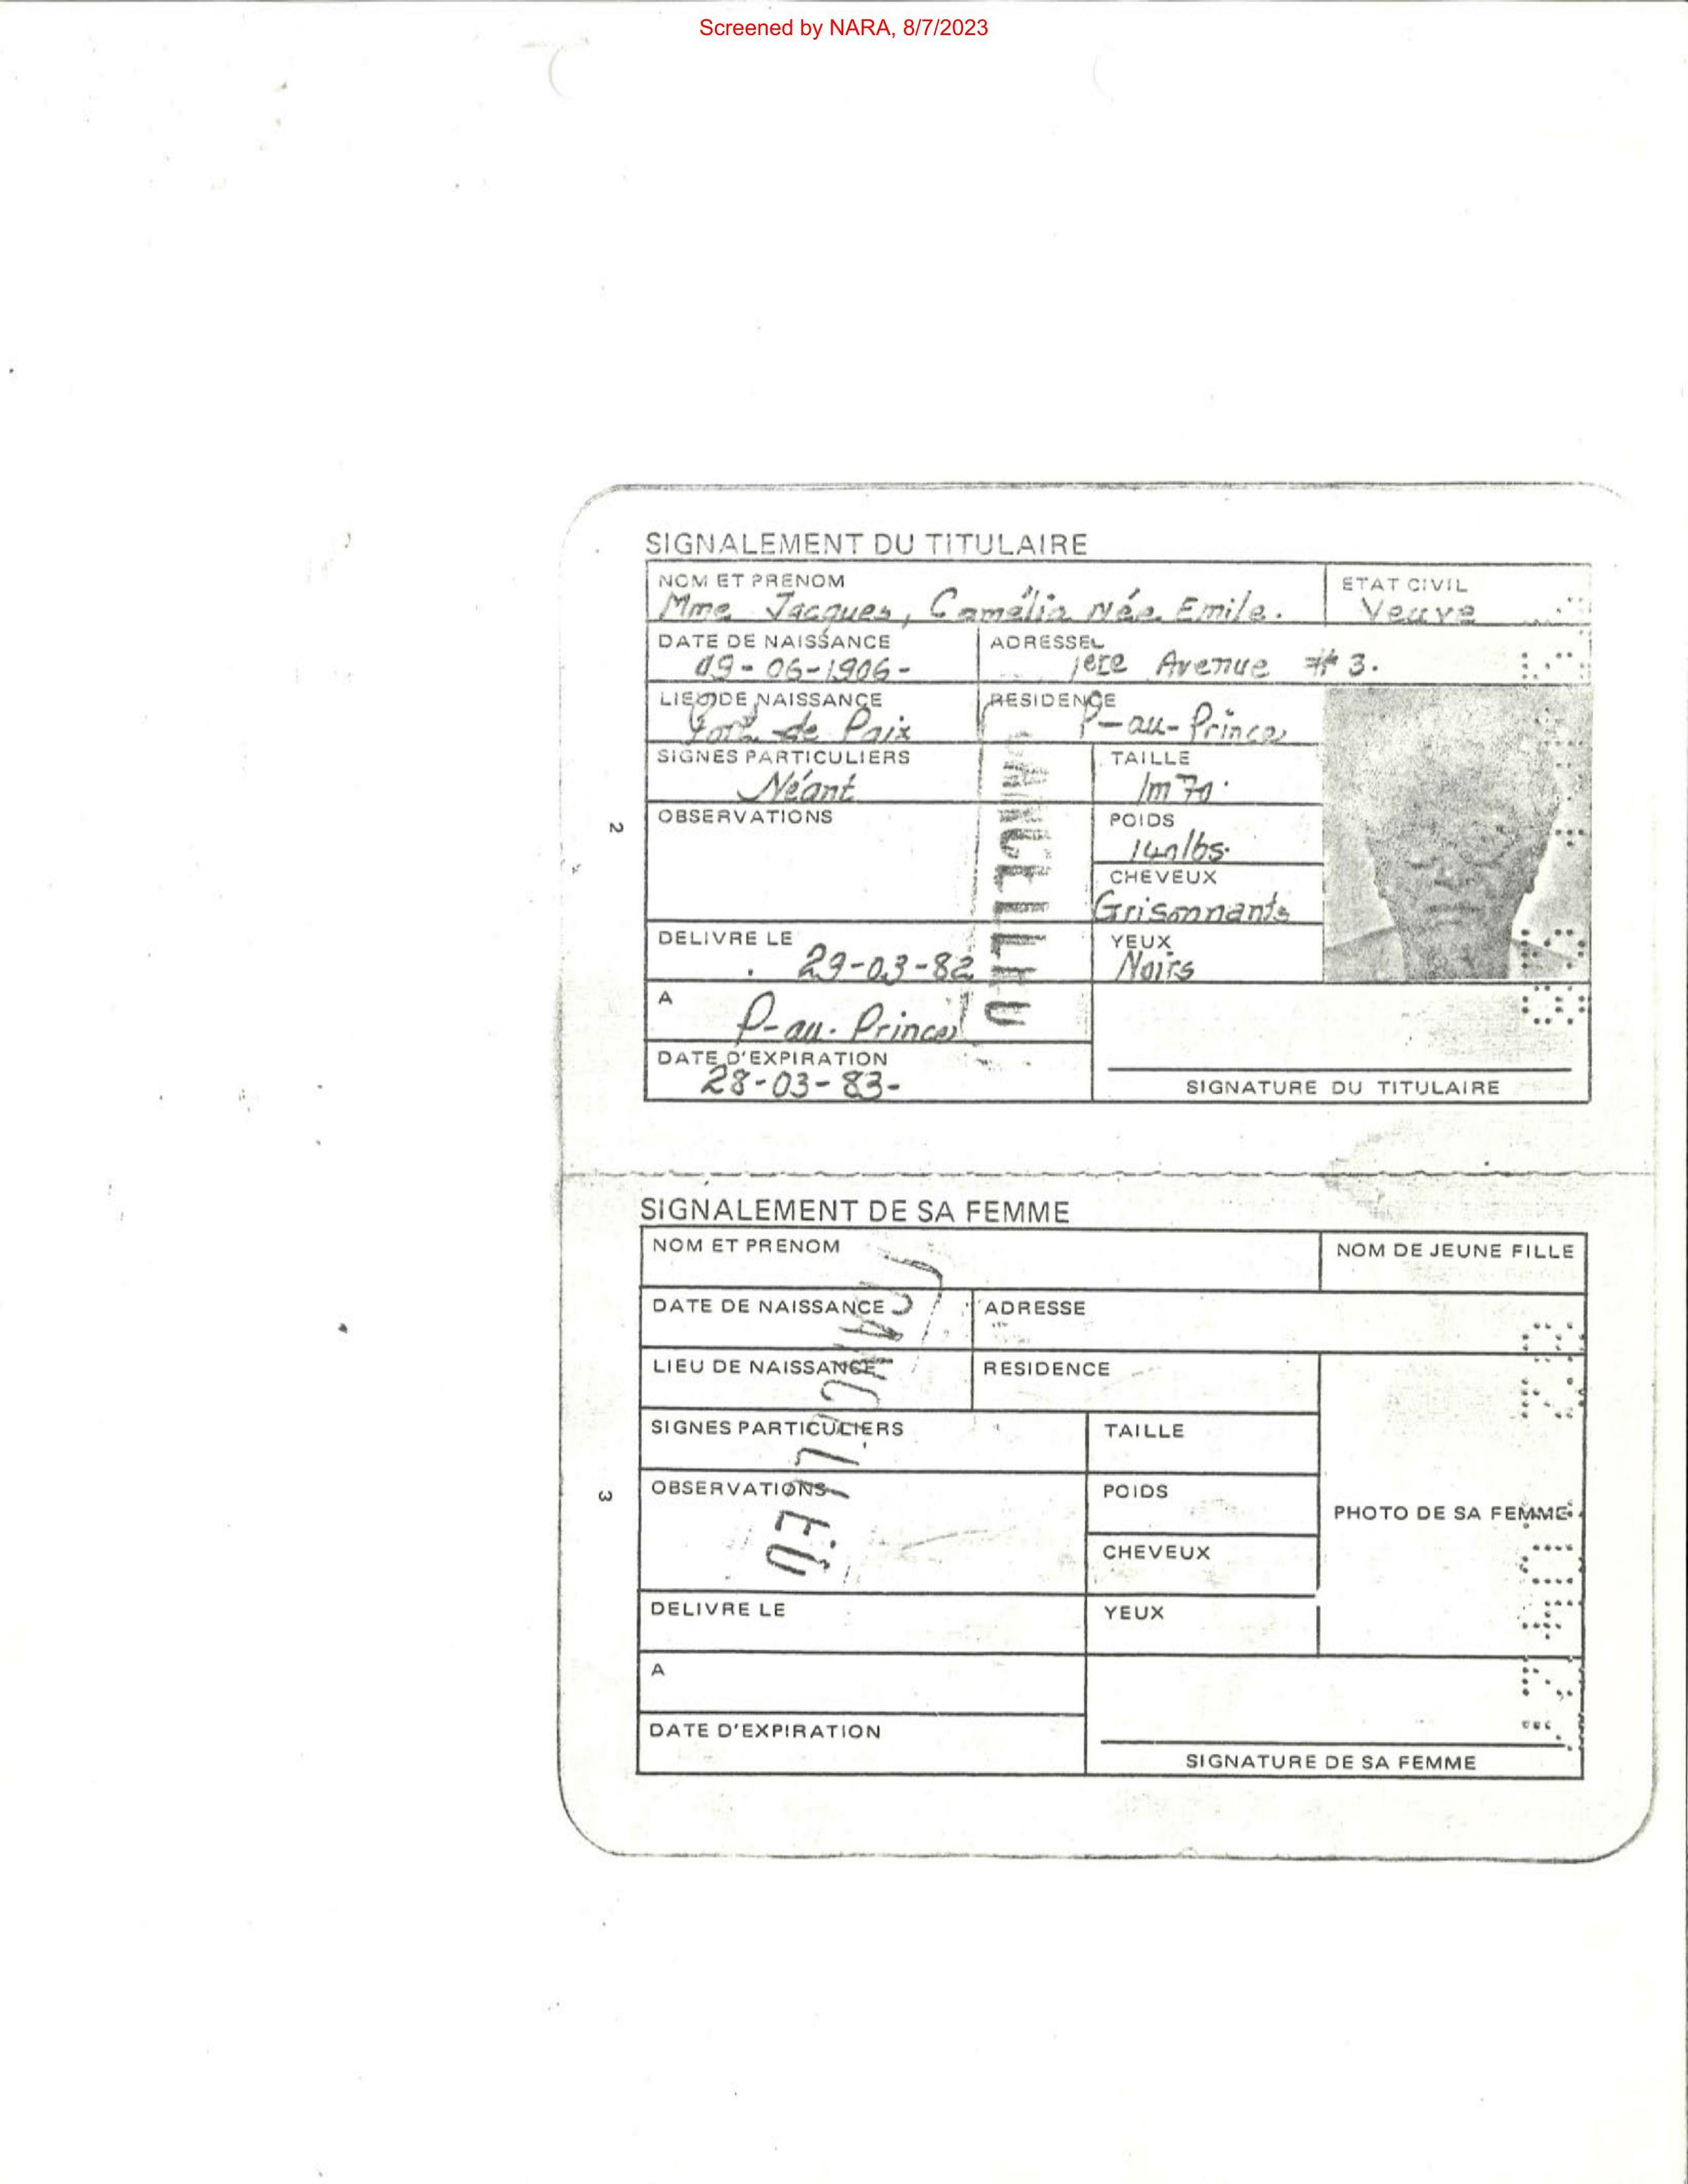 Screened by NARA, 8/7/2023
SIGNALEMENT DU TITULAIRE
NOM ET PRENOM
Mme Jacques, Camélia Née Emile.
ETAT CIVIL
Veuve
DATE DE NAISSANCE
09-06-1906-
ADRESSE
1ere Avenue # 3.
LIEU DE NAISSANCE
Port de Paix
RESIDENCE
P-au-Prince
SIGNES PARTICULIERS
Néant
TAILLE
1m70.
OBSERVATIONS
POIDS
140lbs.
CHEVEUX
Grisonnants
DELIVRE LE
29-03-82
YEUX
Noirs
A
P-au-Prince
DATE D'EXPIRATION
28-03-83-
SIGNATURE DU TITULAIRE
CANCELLED
2
SIGNALEMENT DE SA FEMME
NOM ET PRENOM
NOM DE JEUNE FILLE
DATE DE NAISSANCE
ADRESSE
LIEU DE NAISSANCE
RESIDENCE
SIGNES PARTICULIERS
TAILLE
OBSERVATIONS
POIDS
PHOTO DE SA FEMME
CHEVEUX
DELIVRE LE
YEUX
A
DATE D'EXPIRATION
SIGNATURE DE SA FEMME
CANCELLED
3